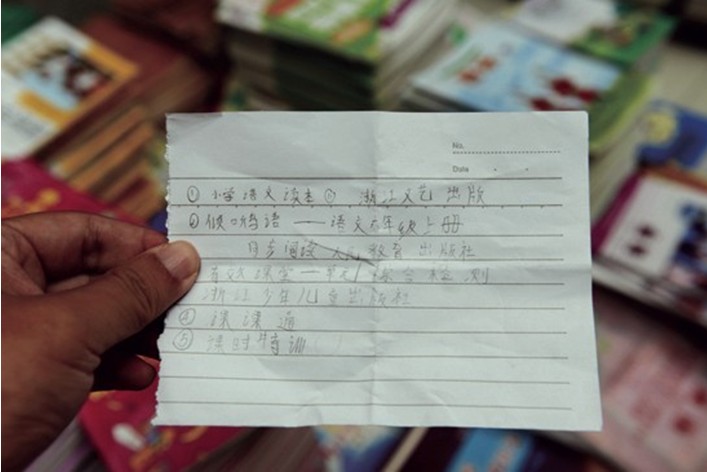 No.
Date
① 小学语文读本⑪ 浙江文艺出版
② 倾口鸣语 —— 语文六年级上册
同步阅读 人民教育出版社
有效课堂—单元综合检测
浙江少年儿童出版社
④ 课课通
⑤ 课时特训